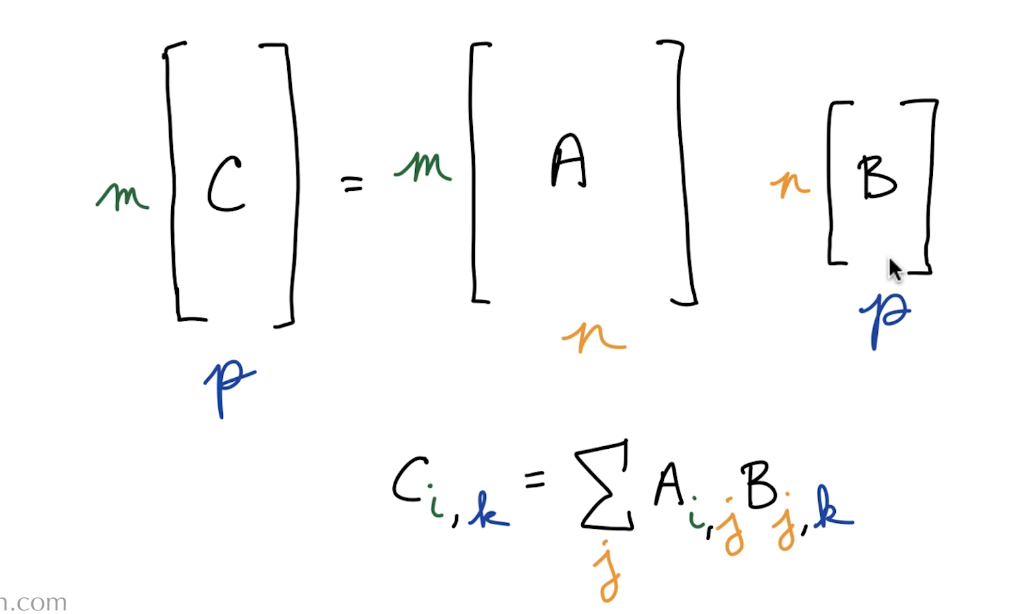 m [ C ] = m [ A ] n [ B ]
p n p
C_{i,k} = ∑_j A_{i,j} B_{j,k}
n.com